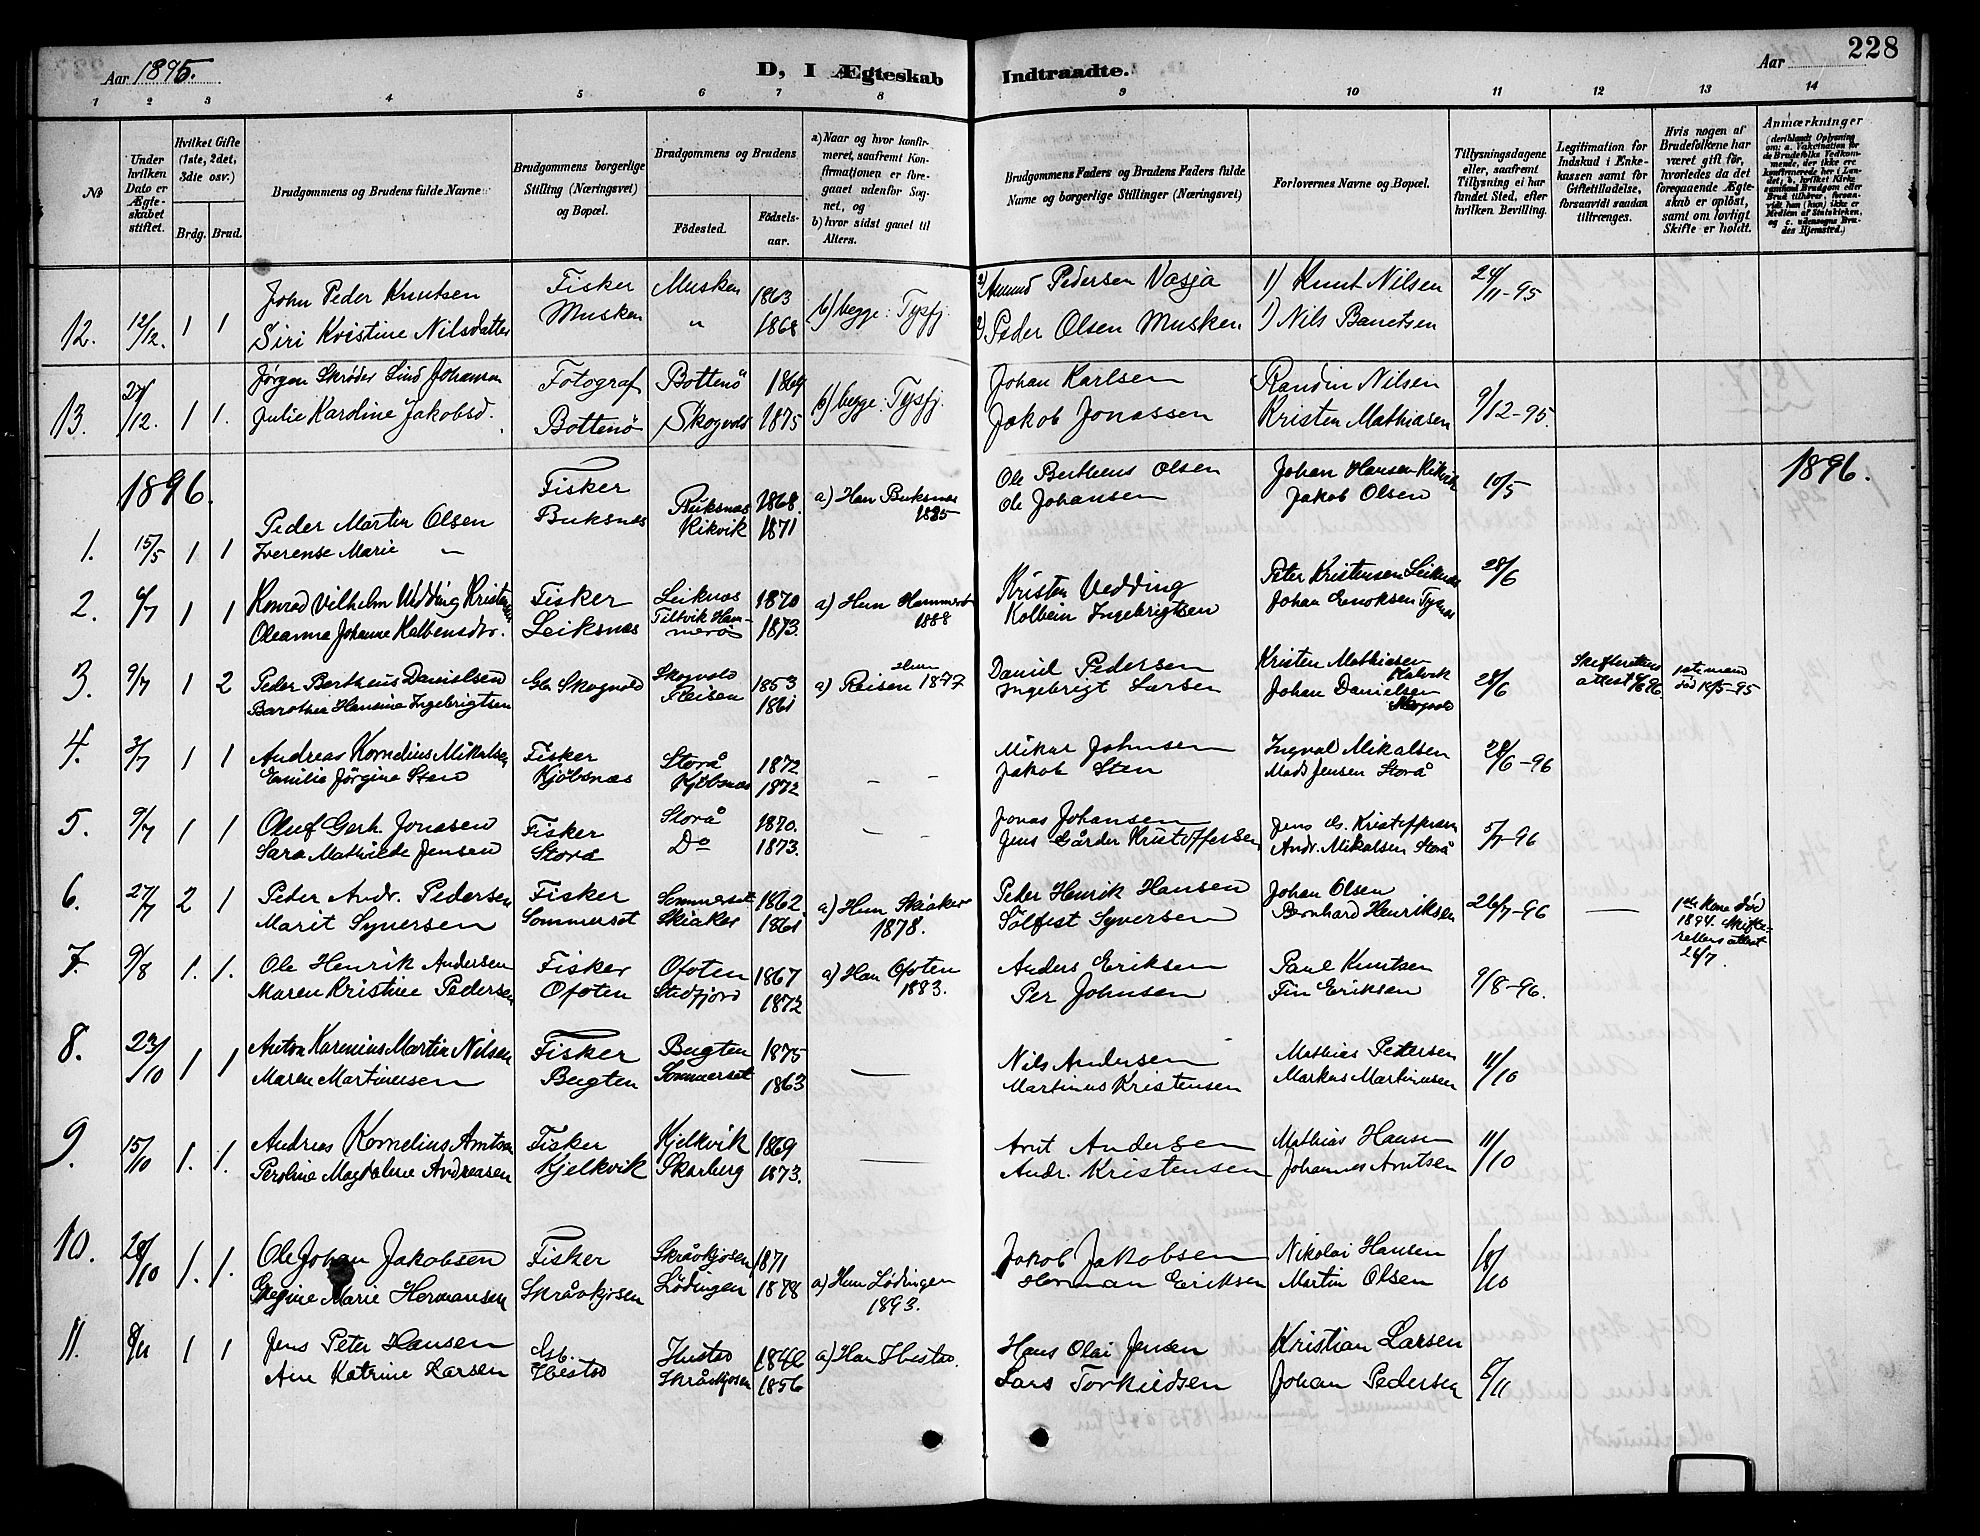 228
Aar 1895.
D, I Ægteskab Indtraadte.
Aar
1 2 3 4 5 6 7 8 9 10 11 12 13 14
No
Under hvilken Dato er Ægteskabet stiftet.
Hvilket Gifte (1ste, 2det, 3die osv.)
Brdg. Brud.
Brudgommens og Brudens fulde Navne
Brudgommens borgerlige Stilling (Næringsvei) og Bopæl.
Brudgommens og Brudens
Födested.
Födselsaar.
a) Naar og hvor konfirmeret, saafremt Konfirmationen er foregaaet udenfor Sognet, og
b) hvor sidst gaaet til Alters.
Brudgommens Faders og Brudens Faders fulde Navne og borgerlige Stillinger (Næringsvei)
Forlovernes Navne og Bopæl.
Tillysningsdagene eller, saafremt Tillysning ei har fundet Sted, efter hvilken Bevilling.
Legitimation for Indskud i Enkekassen samt for Giftetilladelse, forsaavidt saadan tiltrænges.
Hvis nogen af Brudefolkene har været gift för, hvorledes da det foregaaende Ægteskab er oplöst, samt om lovligt Skifte er holdt.
Anmærkninger
(deriblandt Oplysning om: a. Vaksination for de Brudefolks Vedkommende, der ikke ere konfirmerede her i Landet, b. hvilket Kirkesamfund Brudgom eller Brud tilhörer, forsaavidt han (hun) ikke er Medlem af Statskirken, og c. udensogns Brudes Hjemsted.)
John Peder Knutsen Fisker Musken 1863 2) Amund Pedersen Vasja 1) Knut Nilsen 24/11-95
12. 12/12. 1 1 Siri Kristine Nilsdatter Musken " 1868 b) begge: Tysfj. 2) Peder Olsen Musken 1) Nils Banetsen
Jørgen Skrøder Lind Johansen Fotograf Bottenö 1869 Johan Karlsen Randin Nilsen
13. 27/12. 1 1. Julie Karoline Jakobsd. Bottenö Skogvold 1875 b) begge: Tysfj. Jakob Jonassen Kristen Mathiasen 9/12-95.
1896. 1896.
1. 15/5 1 1 Peder Martin Olsen Fisker Buksnæs 1868. a) Han Buksnæs 1885 Ole Bertheus Olsen Johan Hansen Kikvik 10/5
Iverense Marie " Buksnæs Kikvik 1871 Ole Johansen Jakob Olsen
2. 4/7 1 1 Konrad Vilhelm Wedding Kristensen Fisker Leiknæs 1870 a) Hun Hammerö 1888 Kristen Vedding Peter Kristensen Leiknæs 28/6
Oleanna Johanne Kolbensdtr. Leiksnæs Tiltvik Hammerö 1873. Kolbein Ingebrigtsen Johan Enoksen Tysnæs
3. 9/7 1 2 Peder Bertheus Danielsen Gb. Skogvold Skogvold 1853 a) Hun Reisen 1877 Daniel Pedersen Kristen Mathiasen Kalvik 28/6 Skifterettens attest 6/8 96 1ste mand död 15/5-95
Barothea Hansine Ingebrigtsen Reisen 1861 Ingebrigt Larsen Johan Danielsen Skogvold
4. 3/7 1 1 Andreas Kornelius Mikalsen Fisker Storå 1872 - - Mikal Johnsen Ingval Mikalsen 28/6-96
Emilie Jörgine Sten Kjöbsnæs Kjöbsnæs 1872 Jakob Sten Mads Jensen Storå
5. 9/7 1 1 Oluf Gerh. Jonasen Fisker Storå 1870. - - Jonas Johansen Jens G. Kristoffersen 5/7-96
Sara Mathilde Jensen Storå Do 1873. Jens Gårder Kristoffersen Andr. Mikalsen Storå
6. 27/7 2 1 Peder Andr. Pedersen Fisker Sommerset 1862 a) Hun Skiaker 1878. Peder Henrik Hansen Johan Olsen 26/7-96 — 1ste Kone död 1894. Skifterettens attest 26/7.
Marit Syversen Sommerset Skiaker 1861 Sölfest Syversen Bernhard Henriksen
7. 9/8 1. 1. Ole Henrik Andersen Fisker Ofoten 1867 a) Han Ofoten 1883. Anders Eriksen Paul Knutsen 9/8-96.
Maren Kristine Pedersen Ofoten Stedfjord 1872 Per Johnsen Fin Eriksen
8. 23/10 1 1 Anton Karenius Martin Nilsen Fisker Bugten 1875 — Nils Andersen Mathias Pedersen 11/10
Maren Martinusen Bugten Sommerset 1863 Martinus Kristensen Markus Martinusen
9. 15/10 1. 1. Andreas Kornelius Arntsen Fisker Kjelkvik 1869 — Arnt Andersen Mathias Hansen 11/10
Peroline Magdalene Andreasen Kjelkvik Skarberg 1873. Andr. Kristensen Johannes Arntsen
10. 28/10 1. 1. Ole Johan Jakobsen Fisker Skråvkjosen 1871 Jakob Jakobsen Nikolai Hansen 18/10
Regine Marie Hermansen Skråvkjosen Lödingen 1878 a) Hun Lödingen 1893. Herman Eriksen Martin Olsen
11. 8/11 1 1 Jens Peter Hansen Gb. Ibestad 1846 a) Han Ibestad. Hans Olai Jensen Kristian Larsen
Ane Katrine Larsen Ibestad Skråvkjosen 1856 Lars Torkildsen Johan Pedersen 8/11